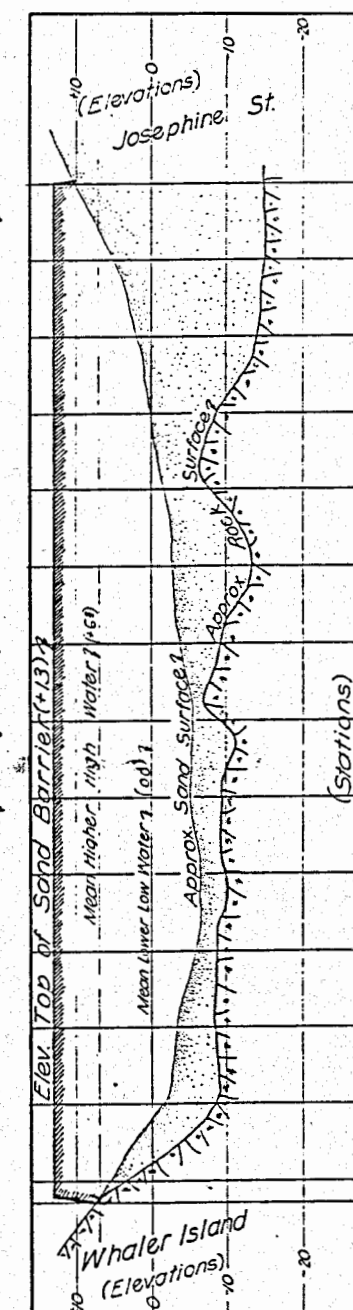 +10
0
-10
-20
(Elevations)
Josephine St.
Elev. Top of Sand Barrier (+13)
Mean Higher High Water
Mean Lower Low Water
Approx. Sand Surface
Approx Rock Surface
(Stations)
Whaler Island
(Elevations)
0
-10
-20